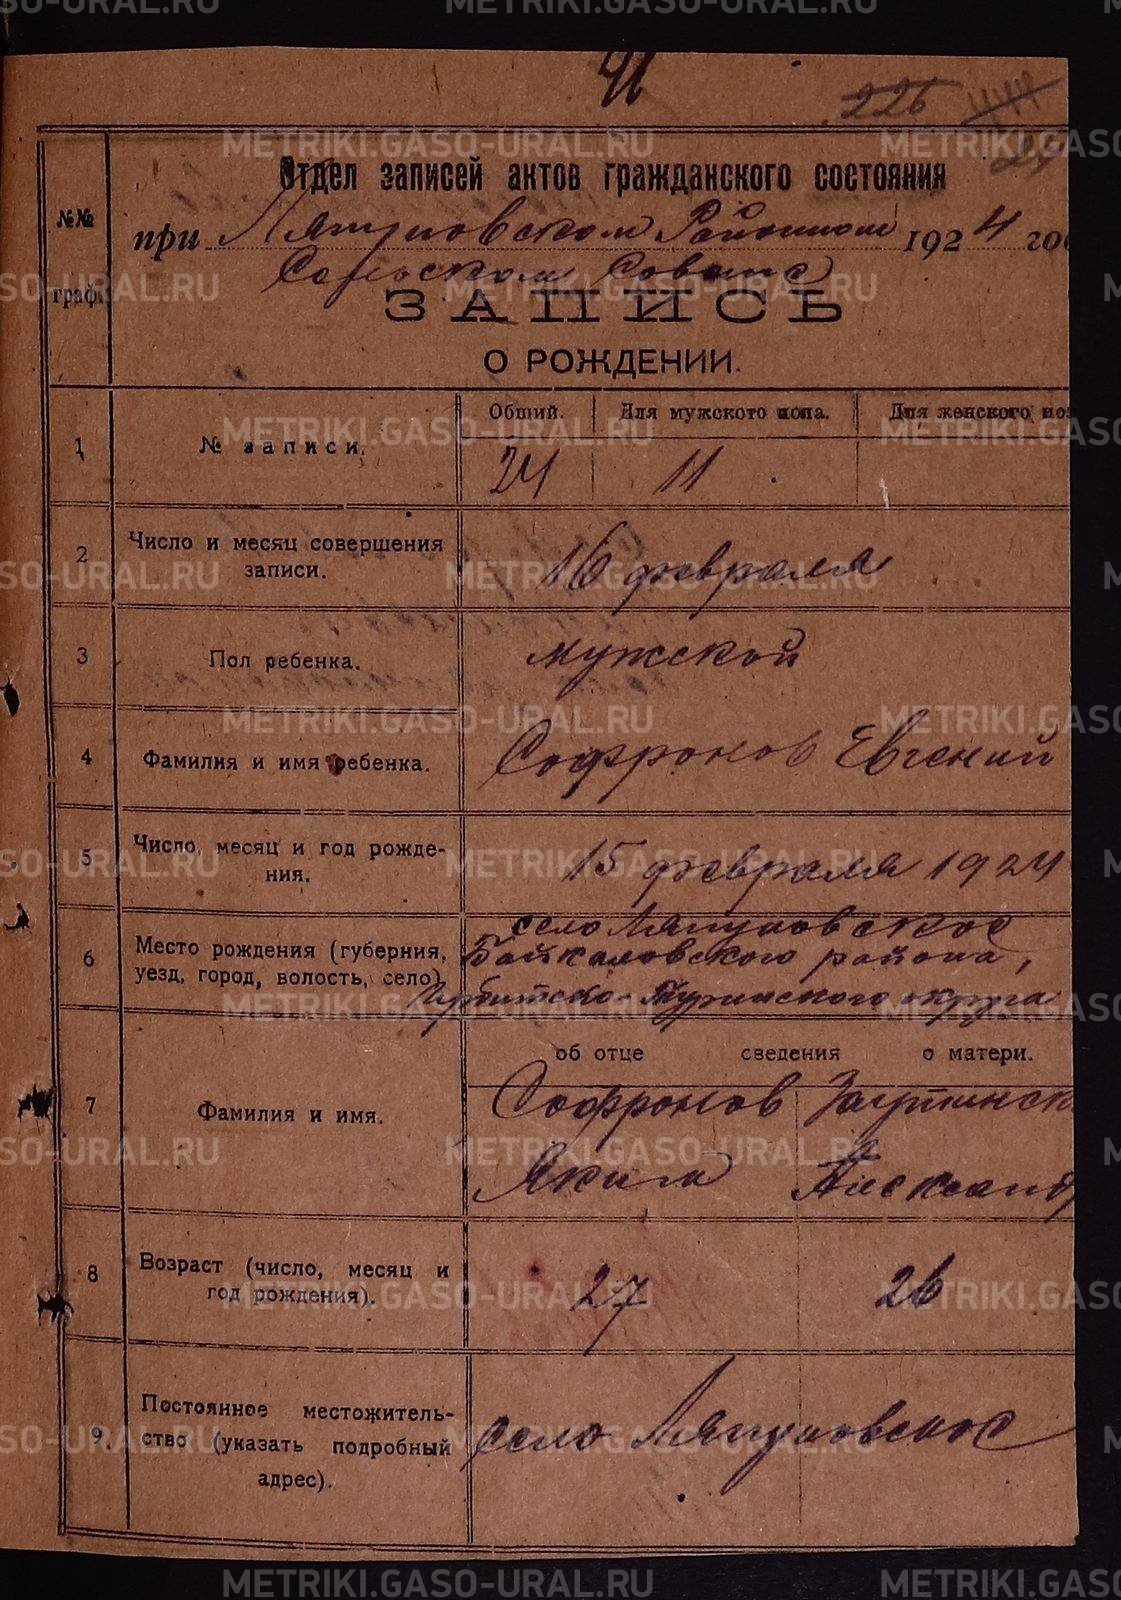 41
226
Отдел записей актов гражданского состояния
при Ляпуновском Районном 1924 го
Сельском Совете
№№ граф.
ЗАПИСЬ
О РОЖДЕНИИ.
1 № записи. Общий. Для мужского пола. Для женского по
24 11
2 Число и месяц совершения
записи.
16 февраля
3 Пол ребенка. мужской
4 Фамилия и имя ребенка. Софронов Евгений
5 Число, месяц и год рожде-
ния.
15 февраля 1924
6 Место рождения (губерния,
уезд, город, волость, село)
село Ляпуновское
Байкаловского района,
Ирбитско-Туринского округа
об отце сведения о матери.
7 Фамилия и имя.
Софронов
Яким Александр
8 Возраст (число, месяц и
год рождения).
27 26
9. Постоянное местожитель-
ство (указать подробный
адрес).
село Ляпуновское
METRIKI.GASO-URAL.RU